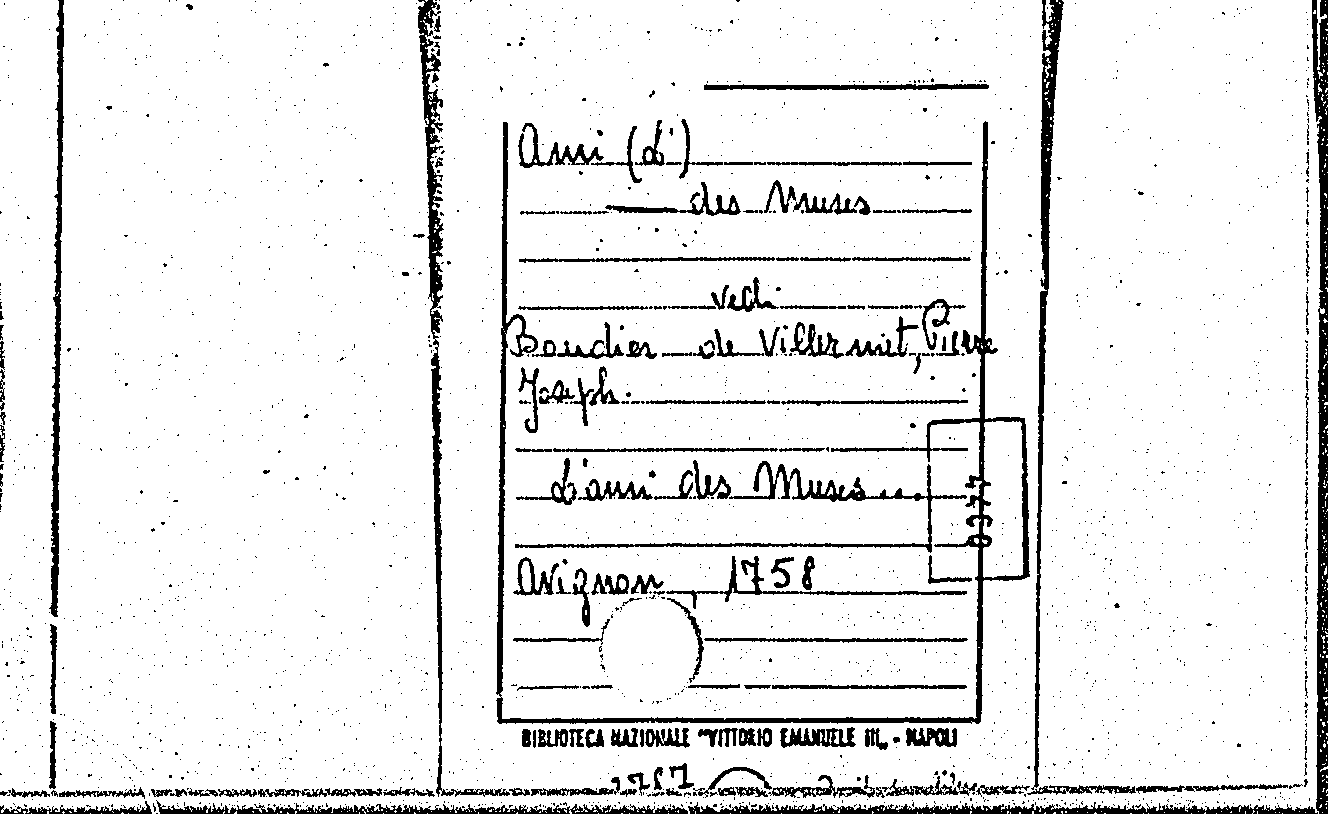 Ami (L')
—— des Muses
vedi
Boudier de Villermet, Pierre
Joseph.
L'ami des Muses...
Avignon, 1758
0377
BIBLIOTECA NAZIONALE "VITTORIO EMANUELE III„ - NAPOLI